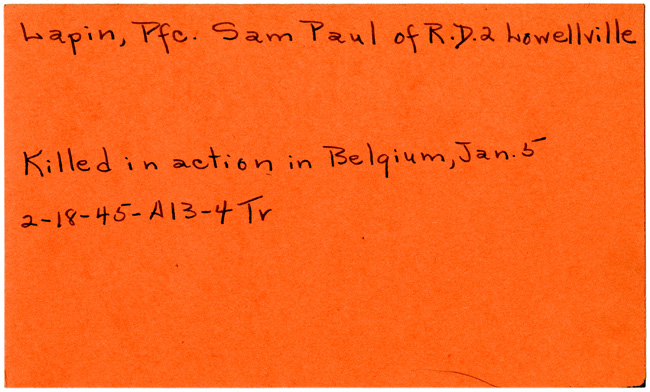 Lapin, Pfc. Sam Paul of R.D.2 Lowellville
Killed in action in Belgium, Jan. 5
2-18-45-A13-4 Tr